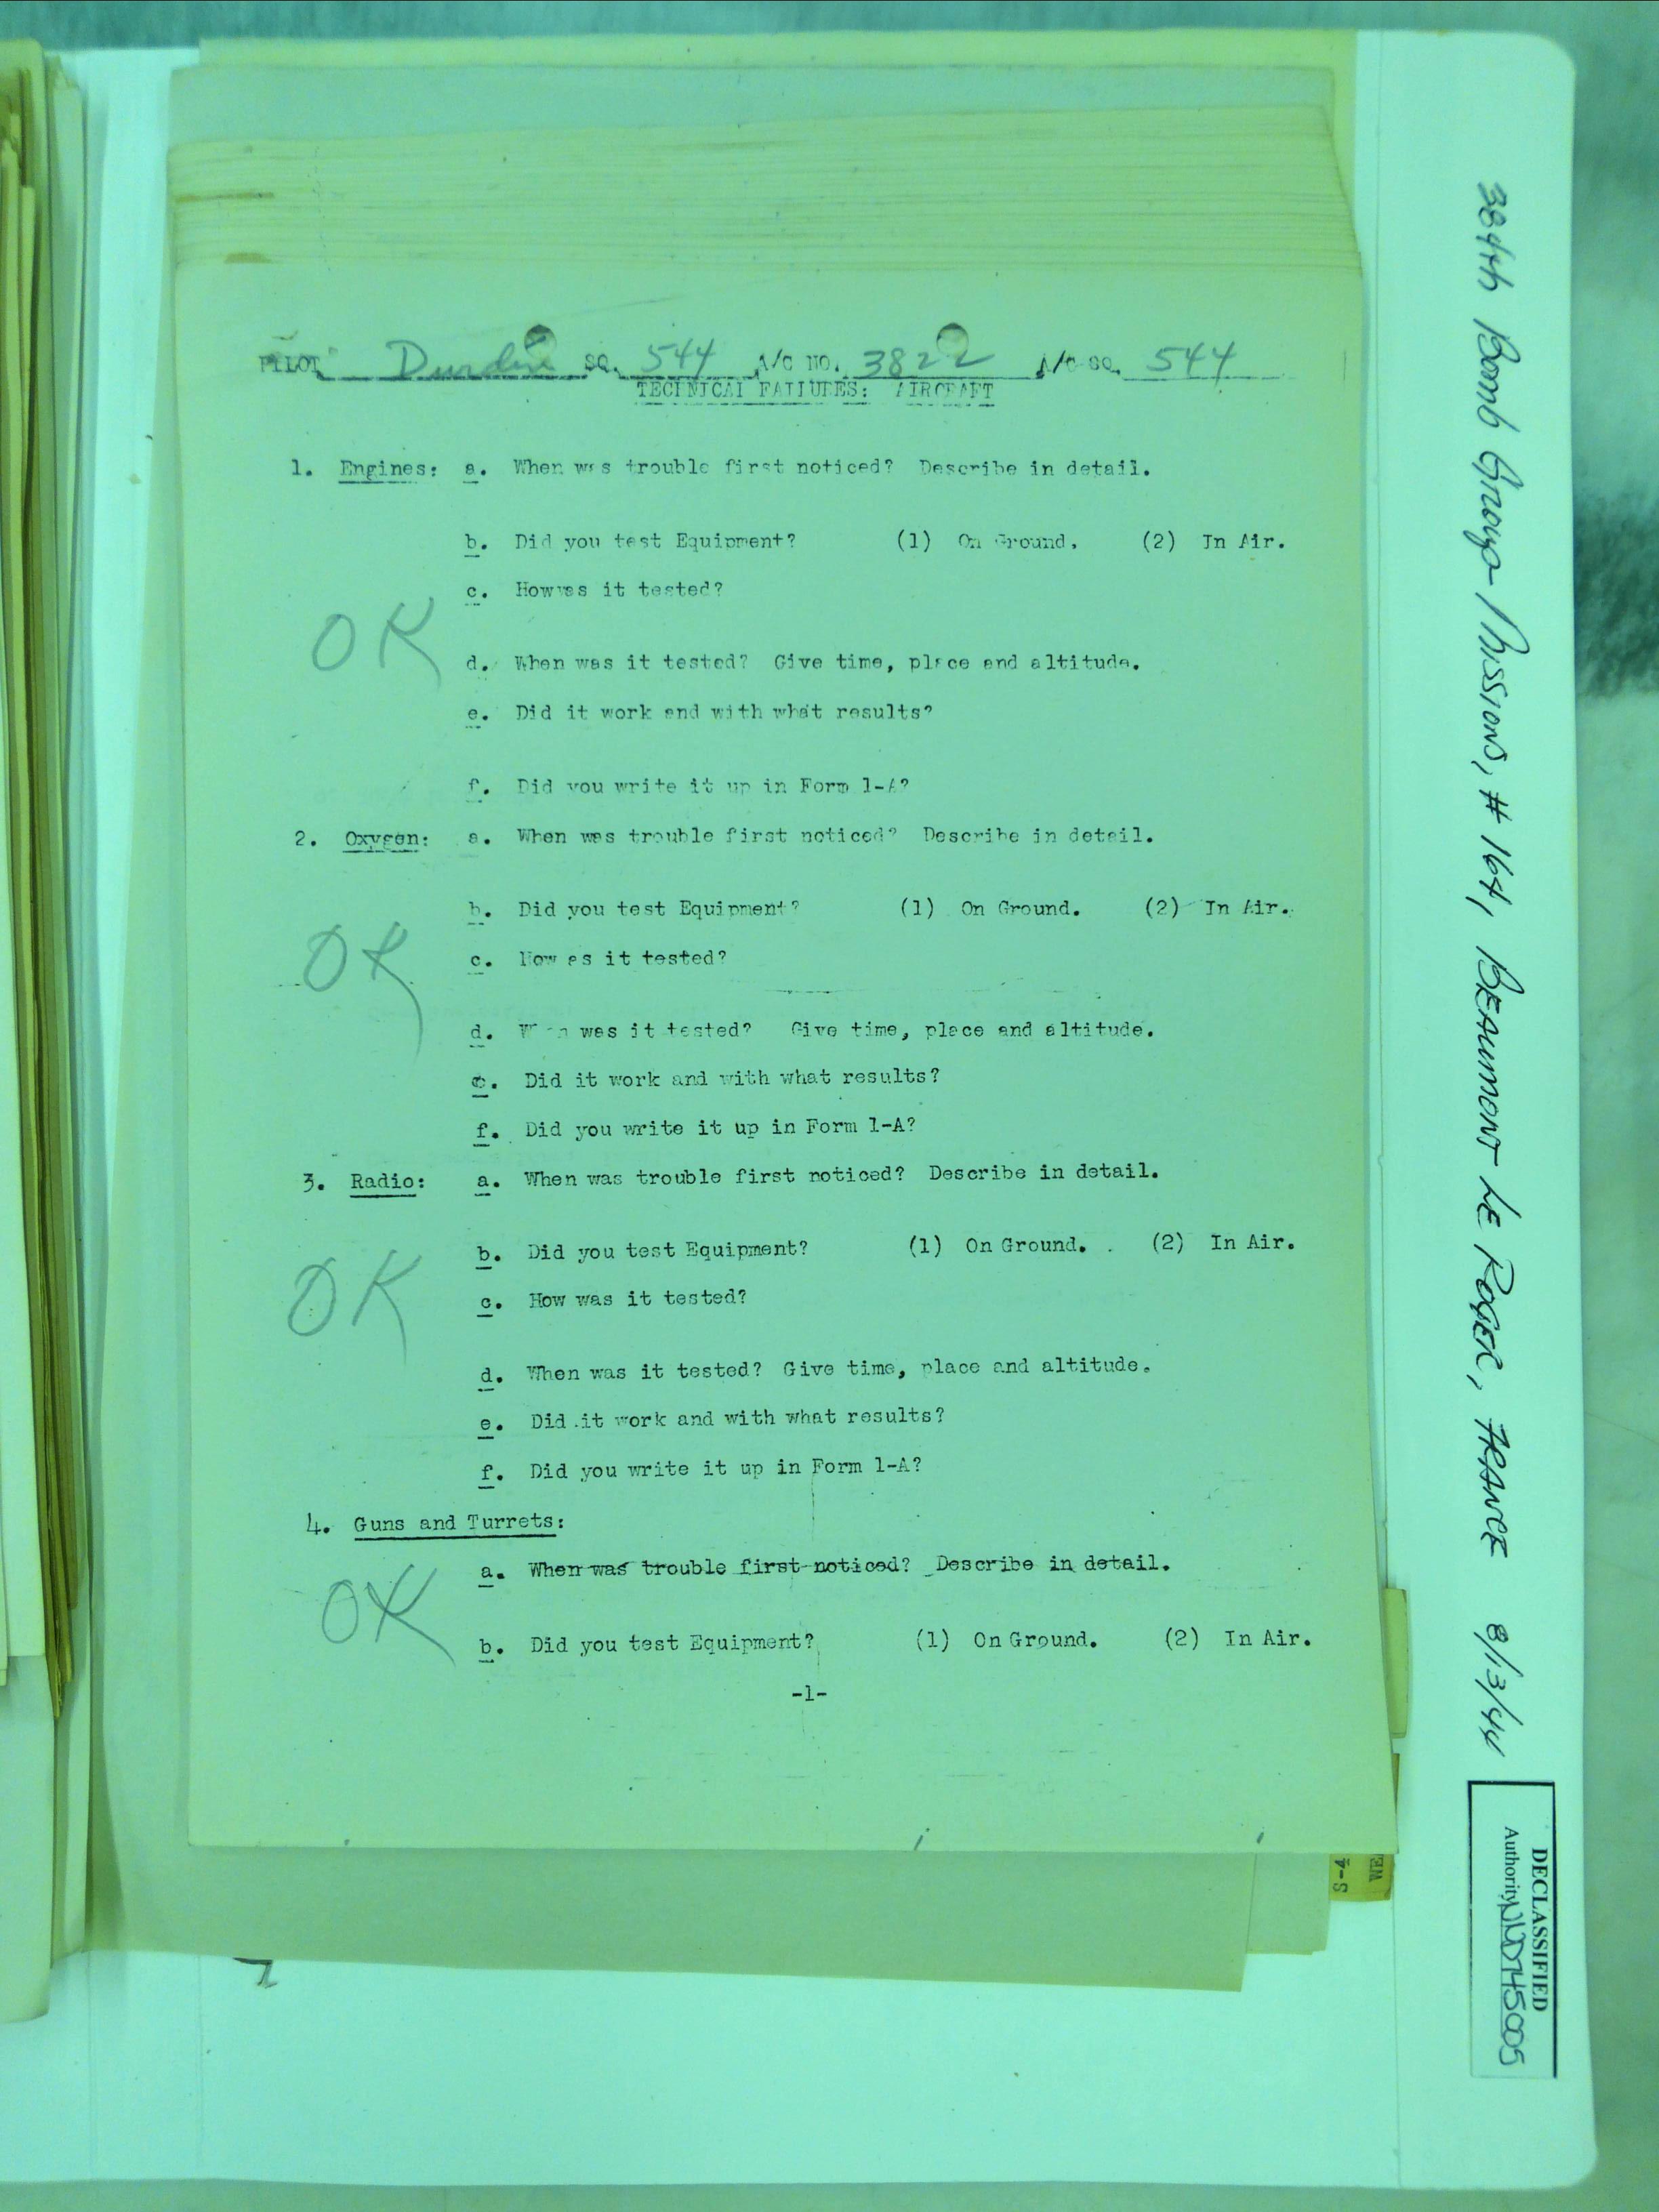 PILOT Durdin SQ. 544 A/C NO. 3822 A/C SQ. 544
TECHNICAL FAILURES: AIRCRAFT
1. Engines: a. When was trouble first noticed? Describe in detail.
b. Did you test Equipment? (1) On Ground. (2) In Air.
c. How was it tested?
OK
d. When was it tested? Give time, place and altitude.
e. Did it work and with what results?
f. Did you write it up in Form 1-A?
2. Oxygen: a. When was trouble first noticed? Describe in detail.
b. Did you test Equipment? (1) On Ground. (2) In Air.
OK
c. How was it tested?
d. When was it tested? Give time, place and altitude.
e. Did it work and with what results?
f. Did you write it up in Form 1-A?
3. Radio: a. When was trouble first noticed? Describe in detail.
b. Did you test Equipment? (1) On Ground. (2) In Air.
OK
c. How was it tested?
d. When was it tested? Give time, place and altitude.
e. Did it work and with what results?
f. Did you write it up in Form 1-A?
4. Guns and Turrets:
a. When was trouble first noticed? Describe in detail.
OK
b. Did you test Equipment? (1) On Ground. (2) In Air.
-1-
384th Bomb Group - Mission, # 164, BEAUMONT LE ROGER, FRANCE 8/13/44
DECLASSIFIED
Authority NND745005
S-4